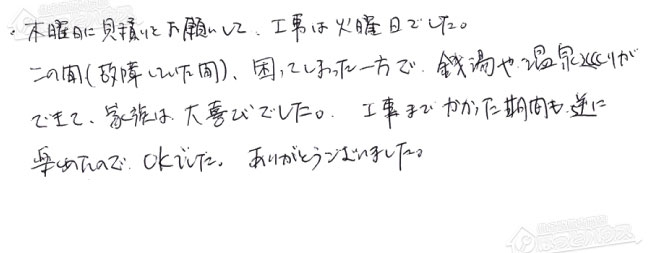 ・木曜日に見積りをお願いして、工事は火曜日でした。
この間(故障していた間)、困ってしまった一方で、銭湯や温泉めぐりが
できて、家族は大喜びでした。工事までかかった期間も逆に
楽めたので、OKでした。ありがとうございました。